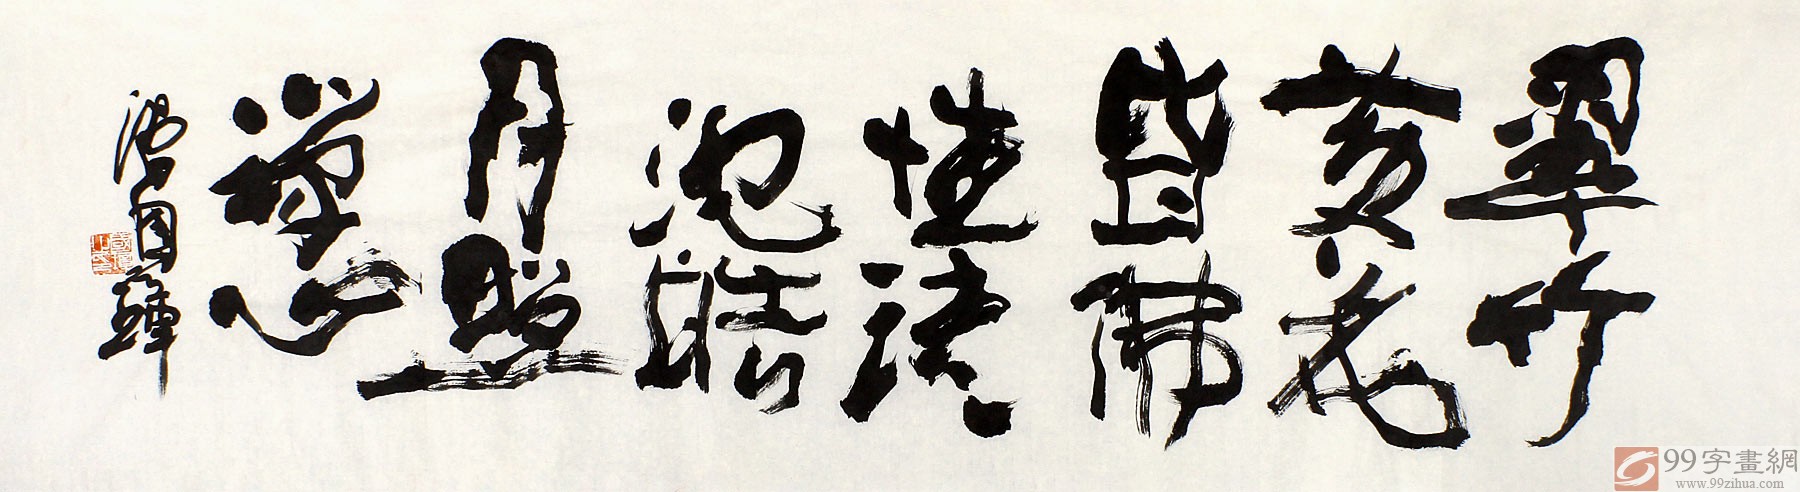 翠竹
黄花
皆佛
性清
池皓
月照
禅心
99字畫網
www.99zihua.com